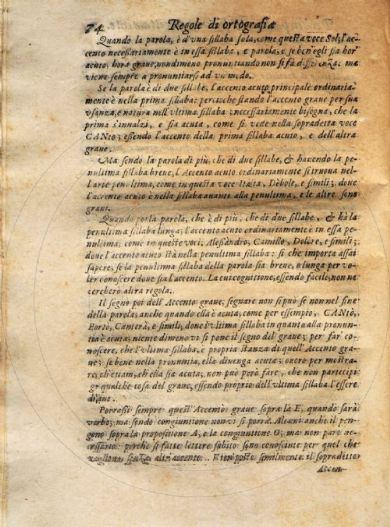 74 Regole di ortografia
Quando la parola, è d'vna sillaba sola, come questa voce Sol, l'ac
cento necessariamente è in essa sillaba, e parola; e se ben egli sia hor'
acuto, hora graue, nondimeno pronuntiando non si fa differenza, ma
viene sempre a pronuntiarsi ad vn modo.
Se la parola è di due sillabe, l'accento acuto principale ordinaria-
mente è nella prima sillaba: percioche stando l'accento graue per sua
vsanza, e natura nell'vltima sillaba necessariamente bisogna, che la
prima s'innalzi, e sia acuta, come si vede nella sopradetta voce
CANto; essendo l'accento della prima sillaba acuto, e dell'altra
graue.
Ma sendo la parola di più, che di due sillabe, & hauendo la pe-
nultima sillaba breue, l'Accento acuto ordinariamente si truoua nel-
l'antepenultima, come in questa voce Italia, Débole, e simili; doue
l'accento acuto è nella sillaba auanti alla penultima, e le altre sono
graui.
Quando poi la parola, che è di più, che di due sillabe, & hà la
penultima sillaba lunga; l'accento acuto ordinariamente è in essa pe-
nultima; come in queste voci, Alessandro, Camillo, Dolore, e simili;
doue l'accento acuto stà nella penultima sillaba: si che importa assai
sapere, se la penultima sillaba della parola sia breue, o lunga per vo-
ler conoscere doue sia l'accento. La cui cognitione, essendo facile, non ne
cercherò altra regola.
Il segno poi dell'Accento graue, segnare non si può se non nel fine
della parola; anche quando ella è acuta, come per essempio, CANtò,
Canterà, e simili, doue l'vltima sillaba in quanto alla pronun-
tia è acuta; niente dimeno vi si pone il segno del graue; per far co-
noscere, che l'vltima sillaba, è propria stanza di quell'Accento gra-
ue; se bene nella pronuntia, ella diuenga acuta;
che non partecipi
qualche cosa del graue, essendo proprio dell'vltima sillaba l'essere
Porrassi sempre quest'Accento graue sopra la E, quando sarà
verbo; ma sendo congiuntione non vi si porrà. Alcuni anche il pon-
gono sopra la propositione A, e la congiuntione O; ma non pare ne-
cessario: perche si fatte lettere
senza altro accento. similmente il sopradetto
Accen-